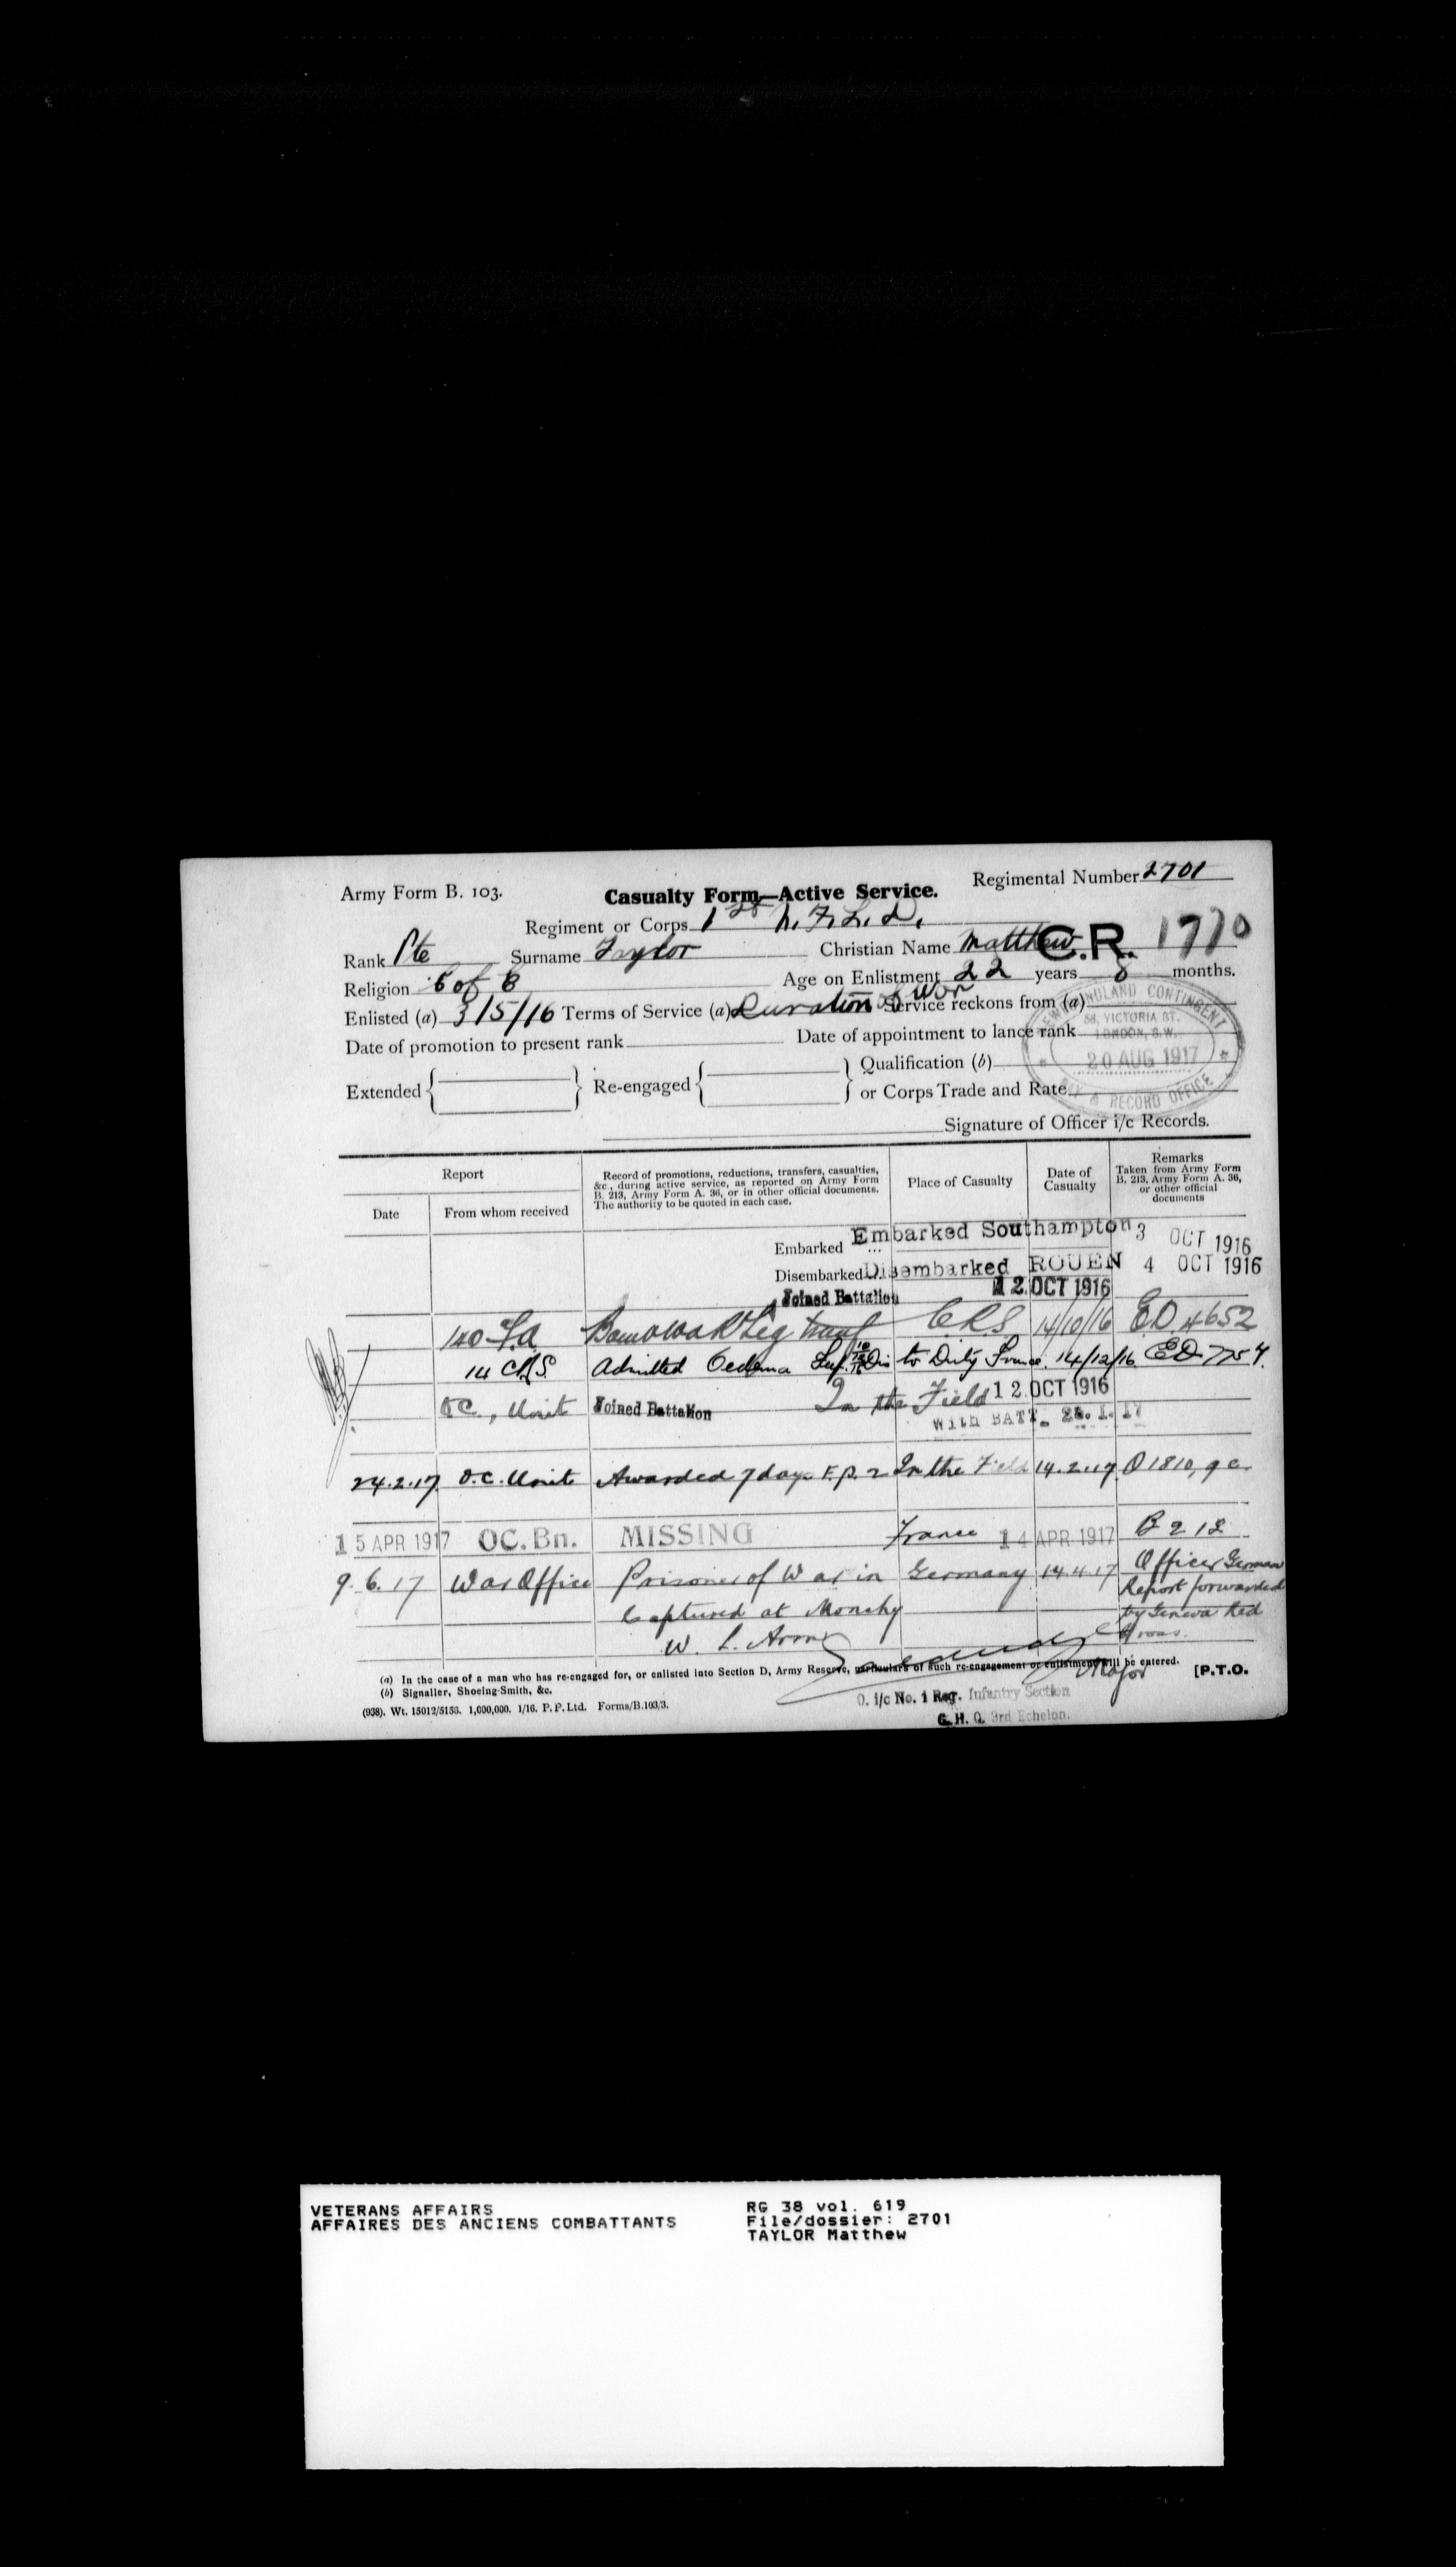 Army Form B. 103.
Casualty Form—Active Service.
Regimental Number 2701
Regiment or Corps 1st N.F.L.D.
C.R. 1770
Rank Pte Surname Taylor Christian Name Matthew
Religion C of E Age on Enlistment 22 years 8 months.
Enlisted (a) 3/5/16 Terms of Service (a) Duration of War Service reckons from (a)
Date of promotion to present rank Date of appointment to lance rank
Extended Re-engaged Qualification (b)
or Corps Trade and Rate
NEWFOUNDLAND CONTINGENT
58, VICTORIA ST.
LONDON, S.W.
20 AUG 1917
PAY & RECORD OFFICE
Signature of Officer i/c Records.
Report
Date From whom received
Record of promotions, reductions, transfers, casualties,
&c., during active service, as reported on Army Form
B. 213, Army Form A. 36, or in other official documents.
The authority to be quoted in each case.
Place of Casualty
Date of
Casualty
Remarks
Taken from Army Form
B. 213, Army Form A. 36,
or other official
documents
Embarked ... Embarked Southampton 3 OCT 1916
Disembarked Disembarked ROUEN 4 OCT 1916
Joined Battalion 12 OCT 1916
140 F.A. Leg C.R.S. 14/10/16 E.D 4652
14 C.R.S. Admitted Oedema Dis to Duty France. 14/12/16 ED
O.C., Unit Joined Battalion In the Field 12 OCT 1916
With BATT.
24.2.17 O.C. Unit Awarded 7 days F.P. 2 In the Field 14.2.17 O 1810,
15 APR 1917 OC. Bn. MISSING France 14 APR 1917 B 213
9.6.17 War Office Prisoner of War in Germany 14.4.17 Officer German
Captured at Monchy Report forwarded
by Geneva Red
Cross.
Major
(a) In the case of a man who has re-engaged for, or enlisted into Section D, Army Reserve, particulars of such re-engagement or enlistment will be entered.
(b) Signaller, Shoeing-Smith, &c.
[P.T.O.
(938). Wt. 15012/5153. 1,000,000. 1/16. P. P. Ltd. Forms/B.103/3.
O. i/c No. 1 Reg. Infantry Section
G. H. Q. 3rd Echelon.
VETERANS AFFAIRS
AFFAIRES DES ANCIENS COMBATTANTS
RG 38 vol. 619
File/dossier: 2701
TAYLOR Matthew